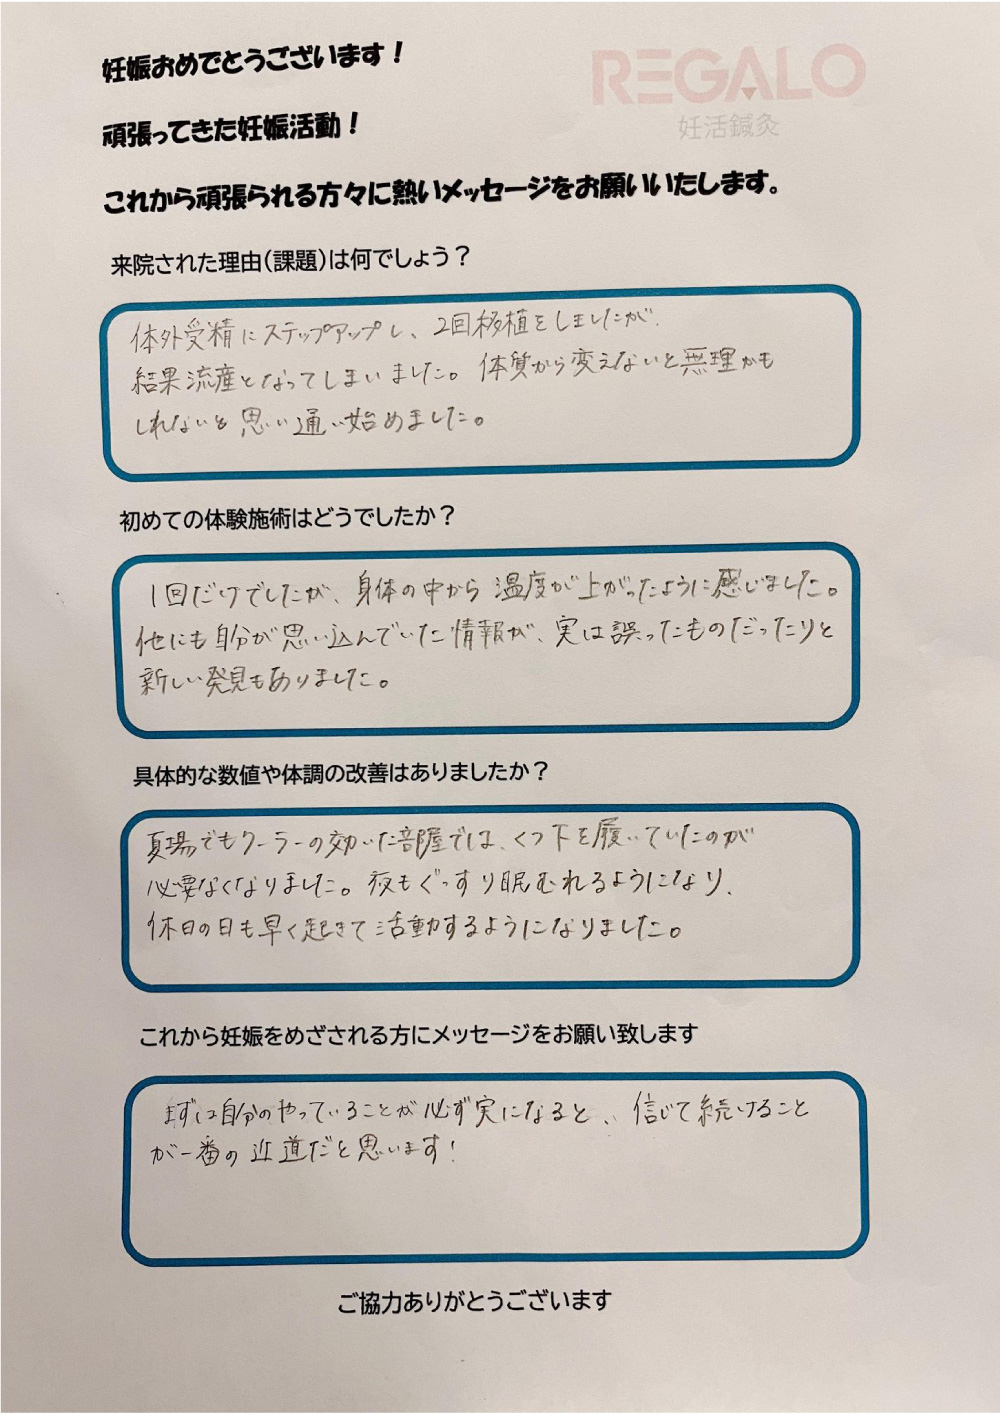 妊娠おめでとうございます！
REGALO
妊活鍼灸
頑張ってきた妊娠活動！
これから頑張られる方々に熱いメッセージをお願いいたします。
来院された理由（課題）は何でしょう？
体外受精にステップアップし、2回移植をしましたが、
結果流産となってしまいました。体質から変えないと無理かも
しれないと思い通い始めました。
初めての体験施術はどうでしたか？
1回だけでしたが、身体の中から温度が上がったように感じました。
他にも自分が思い込んでいた情報が、実は誤ったものだったりと
新しい発見もありました。
具体的な数値や体調の改善はありましたか？
夏場でもクーラーの効いた部屋では、くつ下を履いていたのが
必要なくなりました。夜もぐっすり眠むれるようになり、
休日の日も早く起きて活動するようになりました。
これから妊娠をめざされる方にメッセージをお願い致します
まずは自分のやっていることが必ず実になると、、信じて続けること
が一番の近道だと思います！
ご協力ありがとうございます